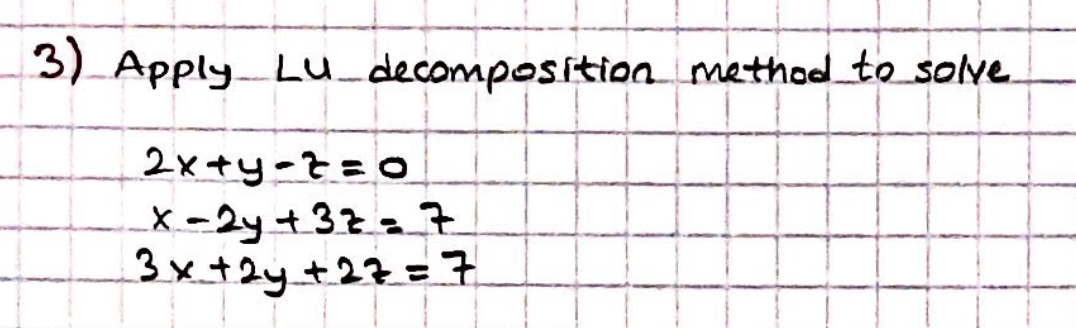 3) Apply LU decomposition method to solve
2x+y-z=0
x-2y+3z=7
3x+2y+2z=7